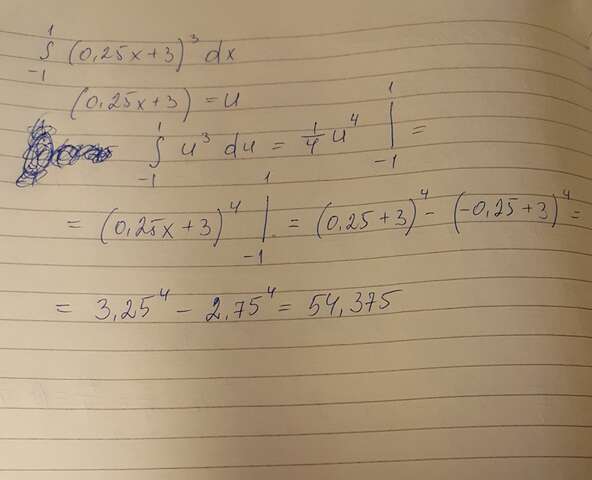 ∫₋₁¹ (0,25x+3)³ dx
(0,25x+3) = u
∫₋₁¹ u³ du = 1/4 u⁴ |₋₁¹ =
= (0,25x+3)⁴ |₋₁¹ = (0,25+3)⁴ - (-0,25+3)⁴ =
= 3,25⁴ - 2,75⁴ = 54,375